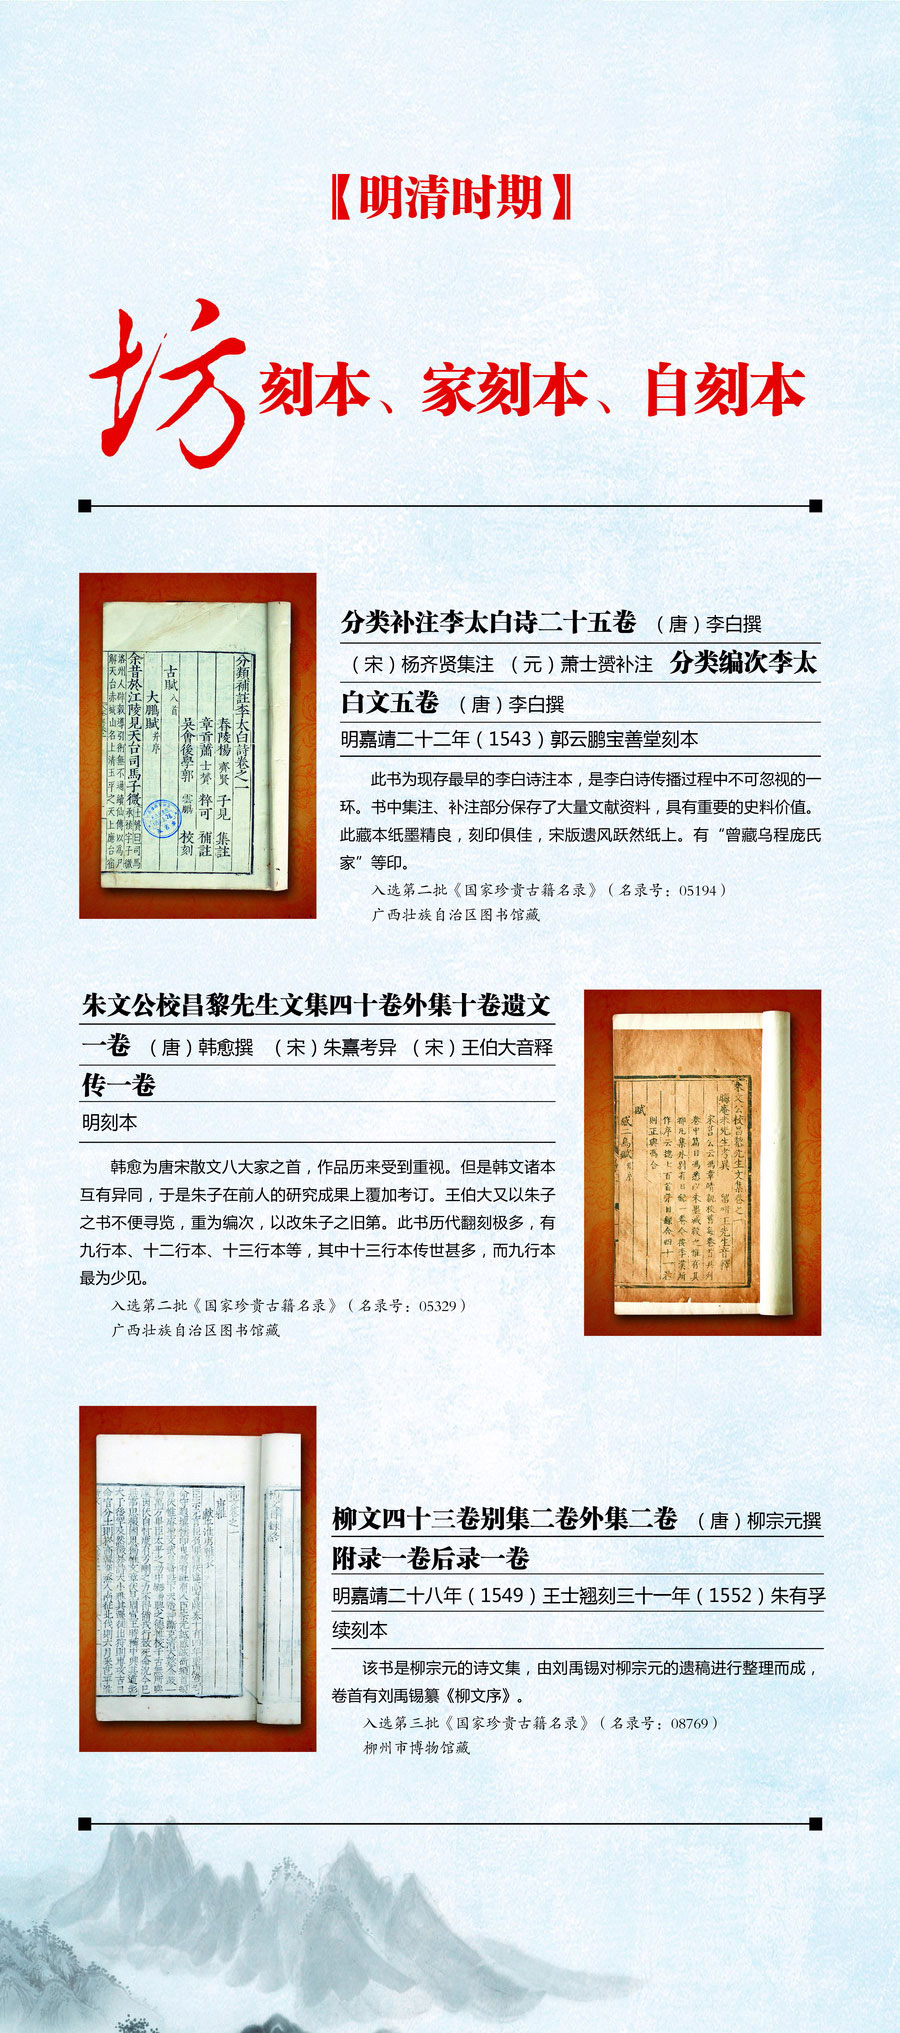 【明清时期】
坊刻本、家刻本、自刻本
分类补注李太白诗二十五卷 （唐）李白撰
（宋）杨齐贤集注 （元）萧士赟补注 分类编次李太
白文五卷 （唐）李白撰
明嘉靖二十二年（1543）郭云鹏宝善堂刻本
此书为现存最早的李白诗注本，是李白诗传播过程中不可忽视的一
环。书中集注、补注部分保存了大量文献资料，具有重要的史料价值。
此藏本纸墨精良，刻印俱佳，宋版遗风跃然纸上。有“曾藏乌程庞氏
家”等印。
入选第二批《国家珍贵古籍名录》（名录号：05194）
广西壮族自治区图书馆藏
分類補註李太白詩卷之一
舂陵楊 齊賢 子見 集註
章貢蕭 士贇 粹可 補註
吳會後學郭 雲鵬 校刻
古賦 八首
大鵬賦 并序
余昔於江陵見天台司馬子微
朱文公校昌黎先生文集四十卷外集十卷遗文
一卷 （唐）韩愈撰 （宋）朱熹考异 （宋）王伯大音释
传一卷
明刻本
韩愈为唐宋散文八大家之首，作品历来受到重视。但是韩文诸本
互有异同，于是朱子在前人的研究成果上覆加考订。王伯大又以朱子
之书不便寻览，重为编次，以改朱子之旧第。此书历代翻刻极多，有
九行本、十二行本、十三行本等，其中十三行本传世甚多，而九行本
最为少见。
入选第二批《国家珍贵古籍名录》（名录号：05329）
广西壮族自治区图书馆藏
朱文公校昌黎先生文集卷之一
晦庵朱先生考異 留耕王先生音釋
賦
柳文四十三卷别集二卷外集二卷 （唐）柳宗元撰
附录一卷后录一卷
明嘉靖二十八年（1549）王士翘刻三十一年（1552）朱有孚
续刻本
该书是柳宗元的诗文集，由刘禹锡对柳宗元的遗稿进行整理而成，
卷首有刘禹锡纂《柳文序》。
入选第三批《国家珍贵古籍名录》（名录号：08769）
柳州市博物馆藏